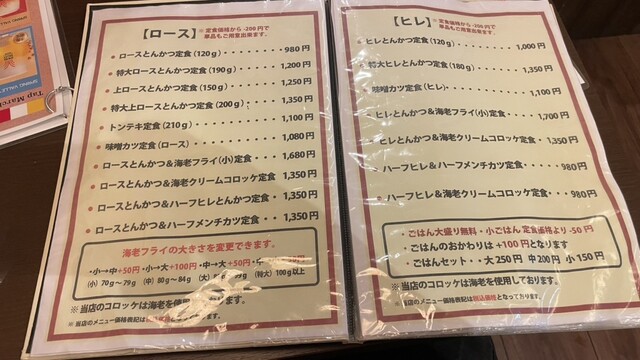 Tap March
【ロース】※定食価格から-200円で
単品もご用意出来ます。
ロースとんかつ定食(120g)・・・・980円
特大ロースとんかつ定食(190g)・・1,200円
上ロースとんかつ定食(150g)・・・1,250円
特大上ロースとんかつ定食(200g)・1,350円
トンテキ定食(210g)・・・・・・・1,100円
味噌カツ定食(ロース)・・・・・・1,080円
ロースとんかつ&海老フライ(小)定食・・・・1,680円
ロースとんかつ&海老クリームコロッケ定食 1,350円
ロースとんかつ&ハーフヒレとんかつ定食・1,350円
ロースとんかつ&ハーフメンチカツ定食・・1,350円
海老フライの大きさを変更できます。
・小→中+50円・小→大+100円・中→大+50円・中
(小)70g〜79g (中)80g〜84g (大) (特大)100g以上
※当店のコロッケは海老を使用
※当店のメニュー価格表記は
【ヒレ】※定食価格から-200円で
単品もご用意出来ます。
ヒレとんかつ定食(120g)・・・・・1,000円
特大ヒレとんかつ定食(180g)・・・・1,350円
味噌カツ定食(ヒレ)・・・・・・1,100円
ヒレとんかつ&海老フライ(小)定食・・・1,700円
ヒレとんかつ&海老クリームコロッケ定食・1,350円
ハーフヒレ&ハーフメンチカツ定食・・・・・980円
ハーフヒレ&海老クリームコロッケ定食・・・980円
・ごはん大盛り無料・小ごはん 定食価格より-50円
・ごはんのおかわりは+100円となります
・ごはんセット・・大250円 中200円 小150円
※当店のコロッケは海老を使用しております。
※当店のメニュー価格表記は税込価格となっております。